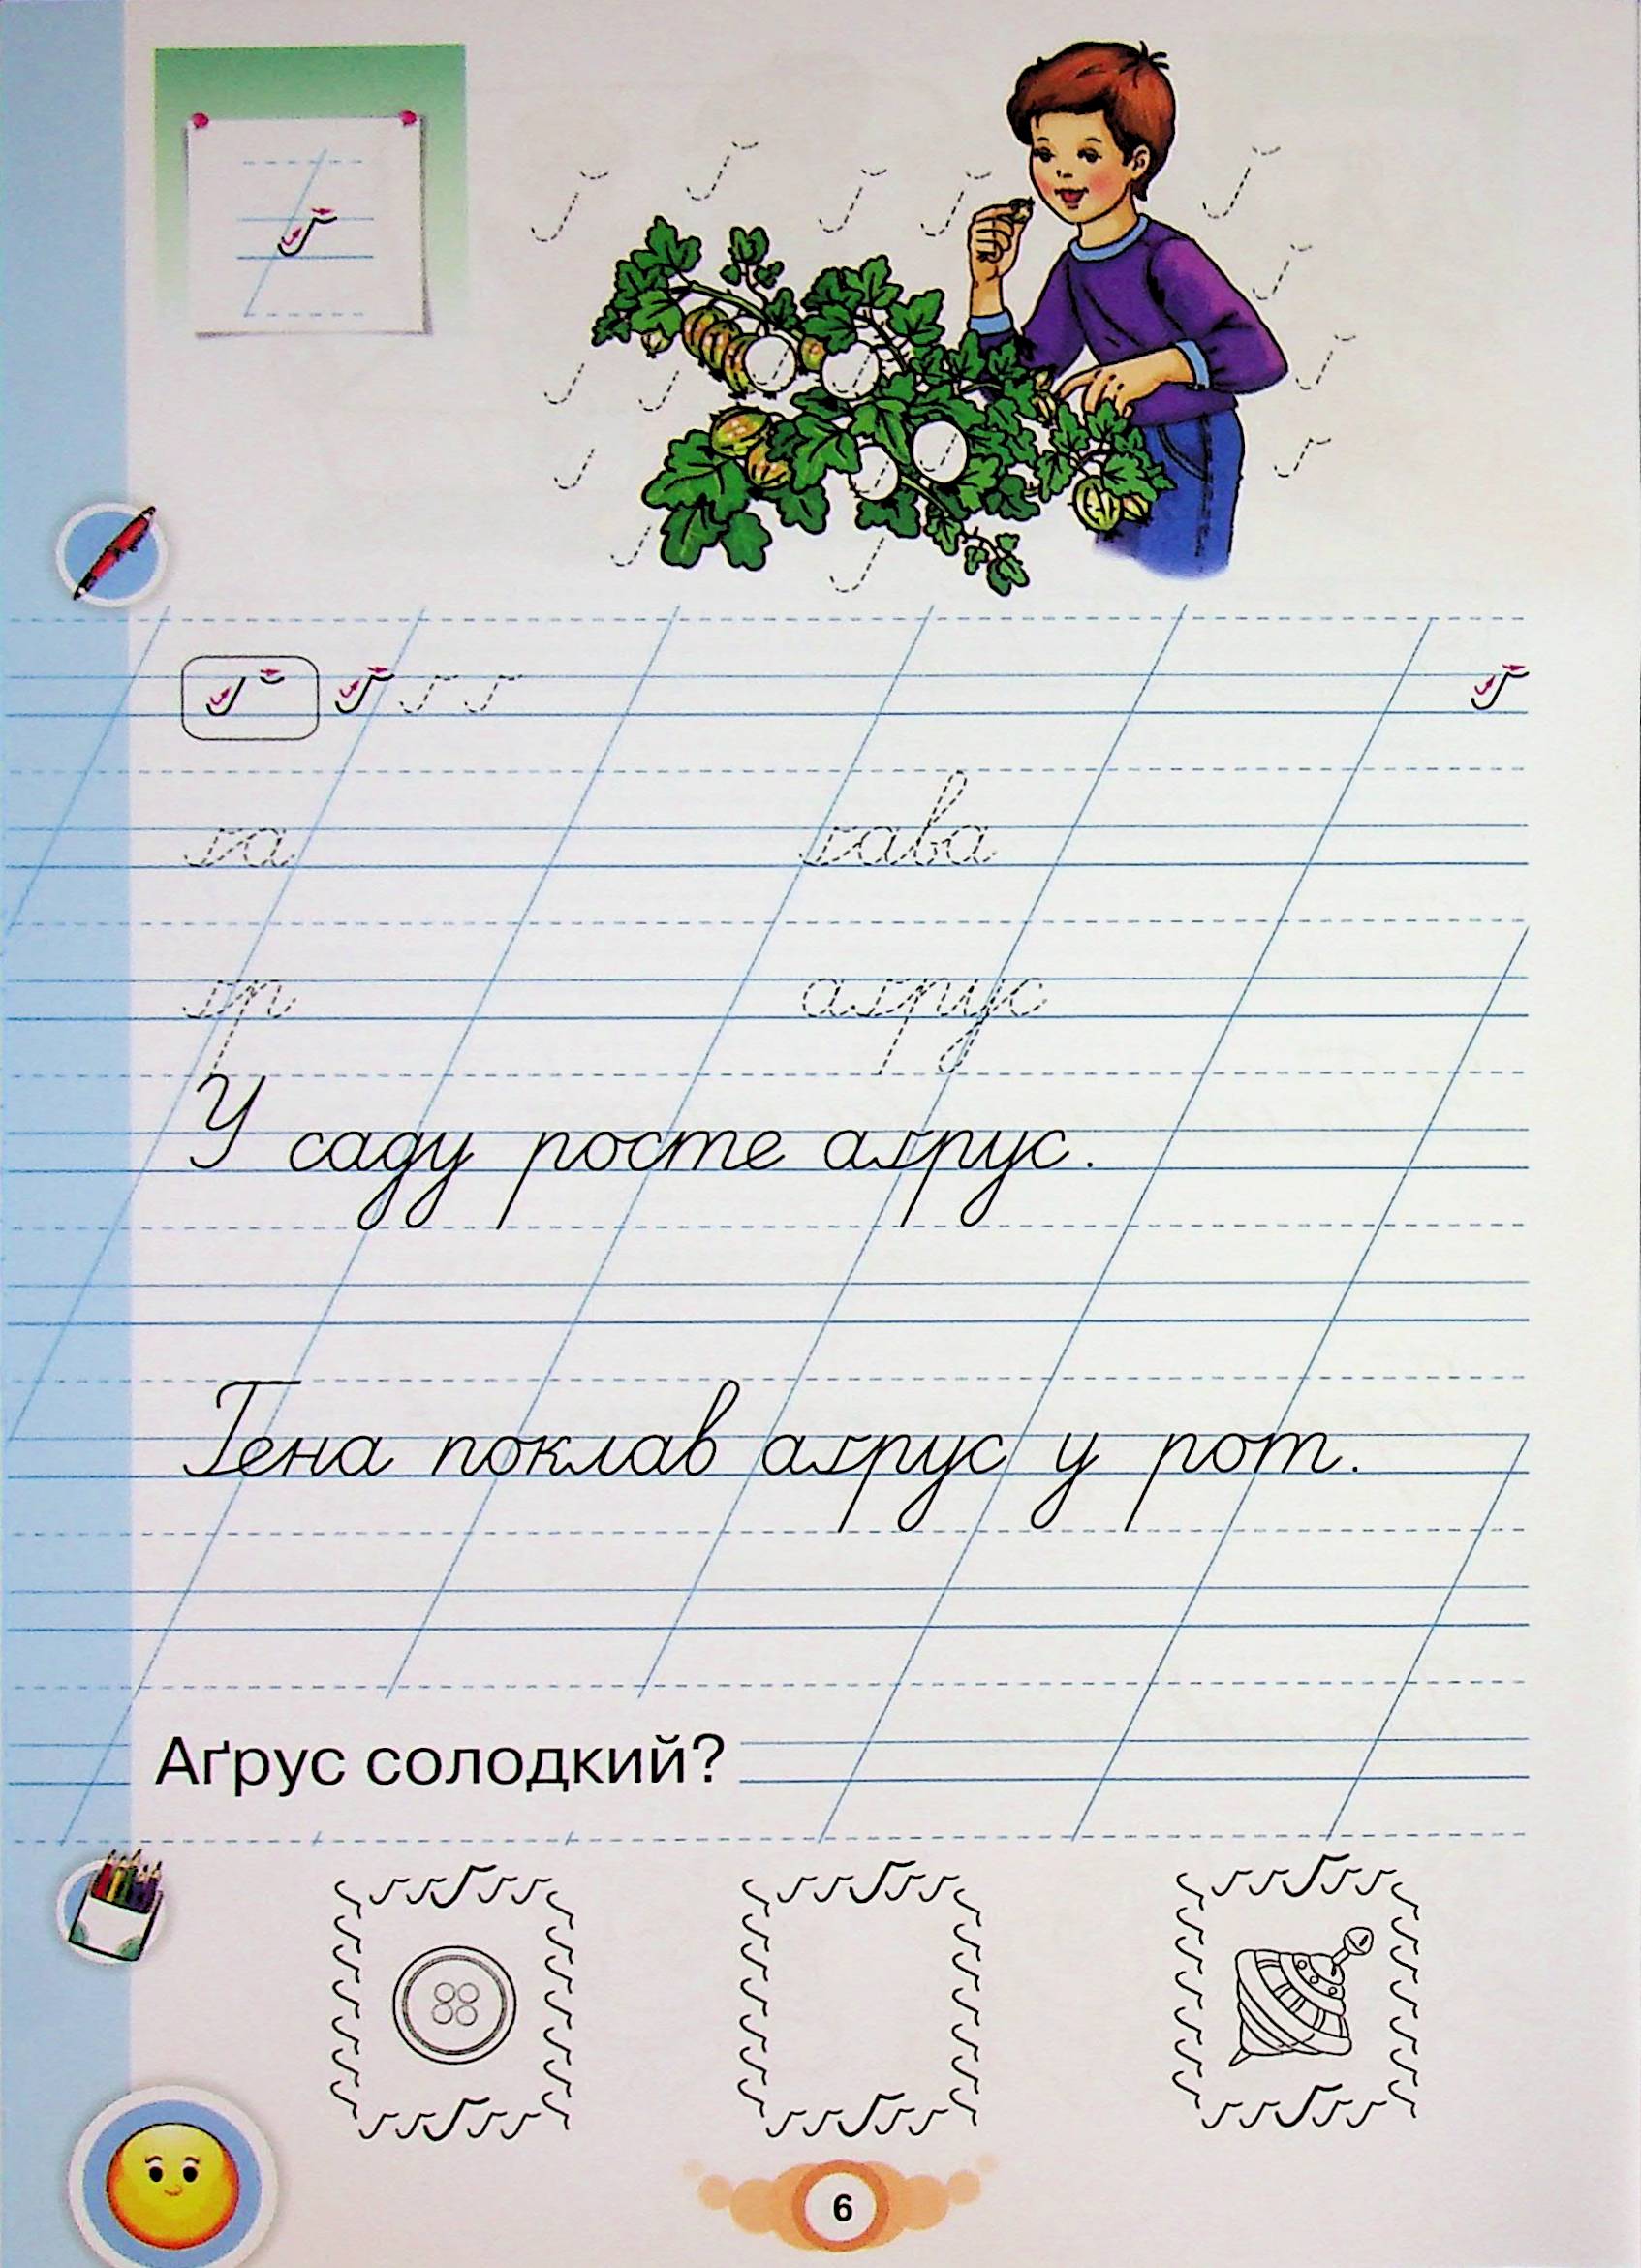 ґ
ґ ґ ґ ґ ґ
ґа ґава
ґр аґрус
У саду росте аґрус.
Ґена поклав аґрус у рот.
Аґрус солодкий?
6